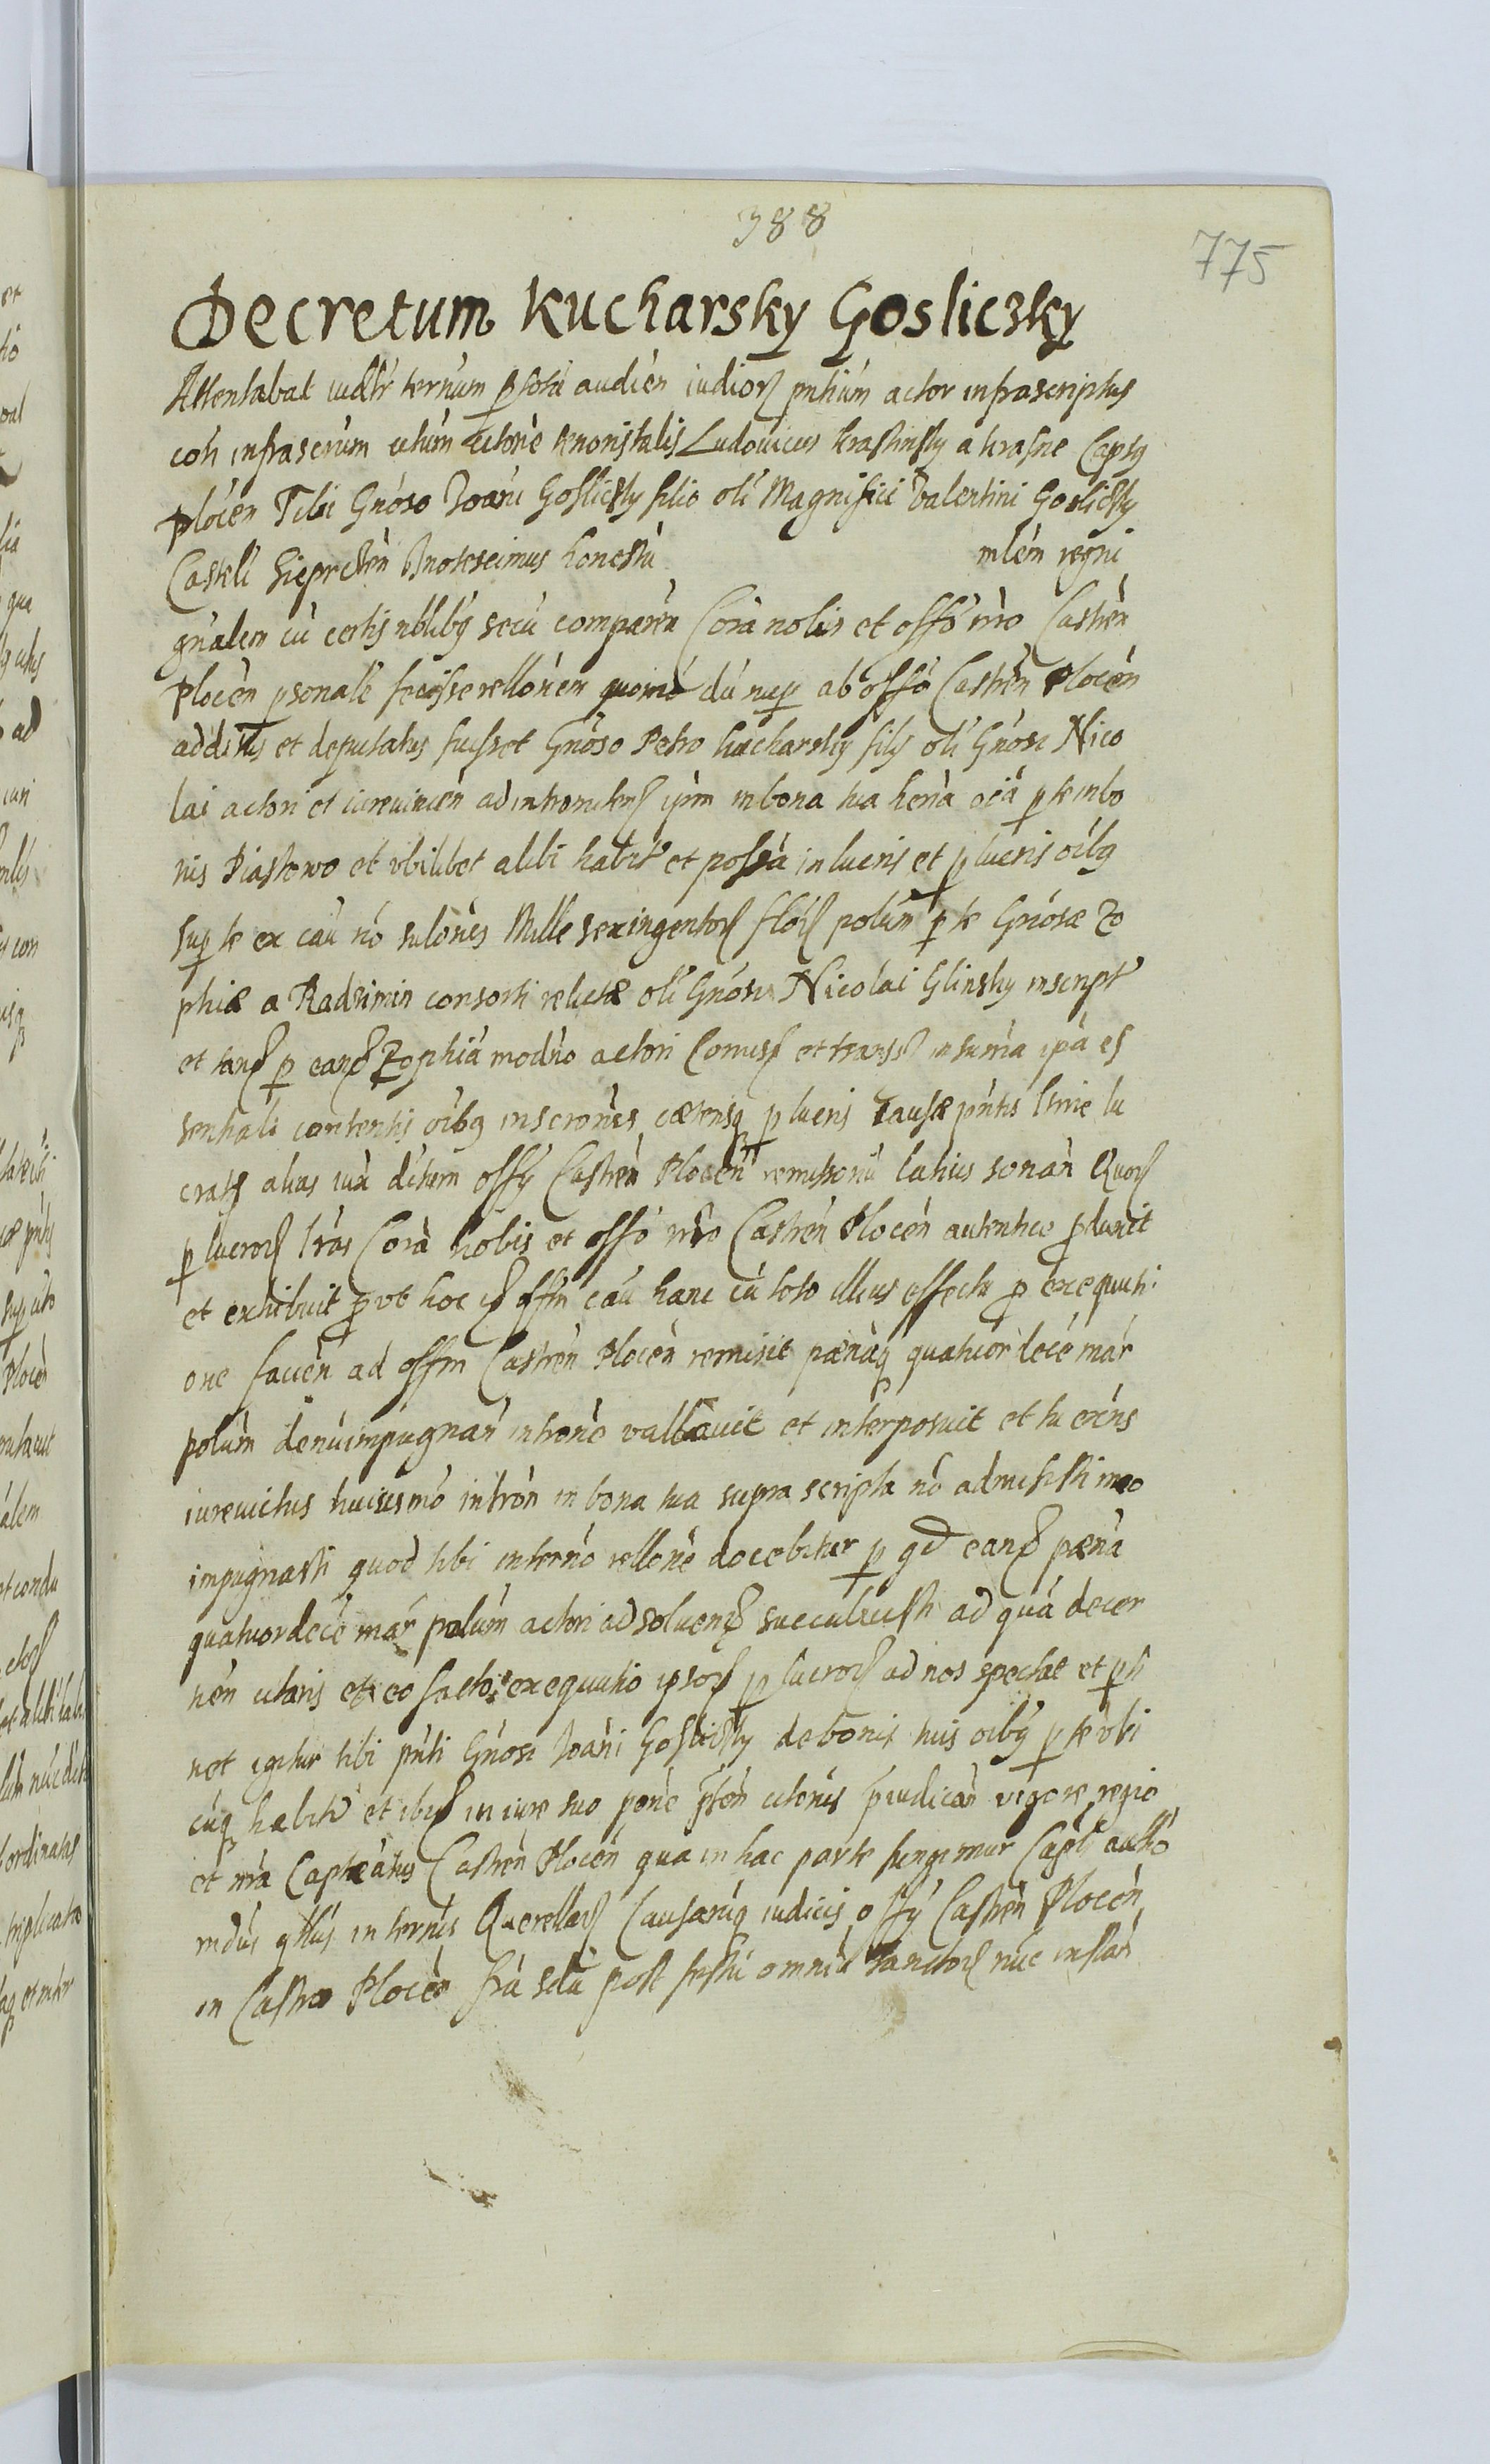 388
775
Decretum Kucharsky Gosliczky
Attentabat iudtr ternum p totu audien iudior pntium actor infrascriptus
coti infrascrum citum citone tenoristalis Ludouicus Krasinsky a Krasne Captg
plocen Tibi Gnoso Joani Gosliczky filio oli Magnifici Valentini Gosliczky
Casteli Sieprcten Jnotescimus honestu mlem regni
gnalem cu certis nblibg secu comparen Cora nobis et offo nro Castren
Plocen psonale fecisse rellonem quomo du nup ab offo Castren Plocen
additus et deputatus fuisset Gnoso Petro Kucharsky filÿ oli Gnosi Nico
lai actori et iurevincen ad intromitten ipm in bona tua heria oia p te in bo
nis Piastowo et vbilibet alibi habit et possa in lucris et p lucris oibg
sup te ex cau no solonis Mille sexingentor flor polun p te Gnosæ Zo
phiæ a Radzimin consorti relictæ oli Gnosi Nicolai Glinsky inscript
et tand p eand Zophia moderno actori Comiss et transs in suma ipa es
sentiali contentis oibg inscronis cætersq p lucris Causæ pntis ltrie lu
crats alias iux ditum offÿ Castren Plocen remissionu latius sonan Quor
p lucror lras Cora nobis et offo nro Castren Plocen autentice pduxit
et exhibuit put hoc id offm cau hanc cu toto illius effectu p exequuti
one facien ad offm Castren Plocen remisit pænaq quatuordece mar
polum denuimpugnan introne vallauit et interposuit et tu exns
iurevictus huiusmo intron in bona tua supra scripta no admisisti imo
impugnasti quod tibi in terno rellone docebitur p qd eand pæna
quatuordece mar polum actori ad soluend succubuisti ad qua decer
nen citaris et eo facto exequutio ipsor p lucror ad nos spectat et pti
net igitur tibi pnti Gnosi Joani Gosliczky de bonis tuis oibg p te vbi
cuq habit et ibid in iure suo pone pten citonis piudican vigore regio
et nra Capteatus Castren Plocen qua in hac parte fungimur Capli autho
mdus qtus in ternis Querellar Causaruq iudicis offÿ Castren Plocen
in Castro Plocen fra scda post festu omniu Sanctor nuc instan